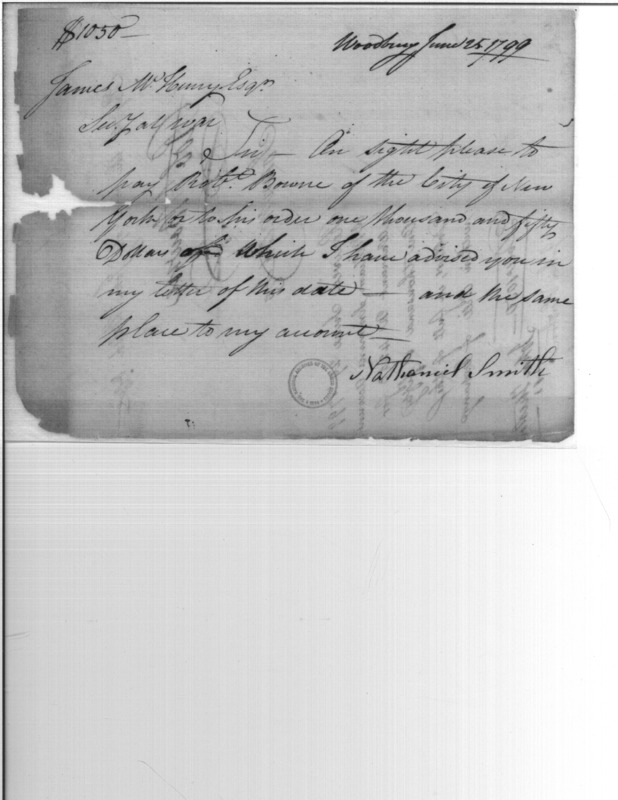 $1050—
Woodbury June 25. 1799
James McHenry Esqr.
Secy of War
Sir — On sight please to
pay Robt. Bowne of the City of New
York or to his order one thousand and fifty
Dollars of which I have advised you in
my letter of this date — and the same
place to my account —
Nathaniel Smith